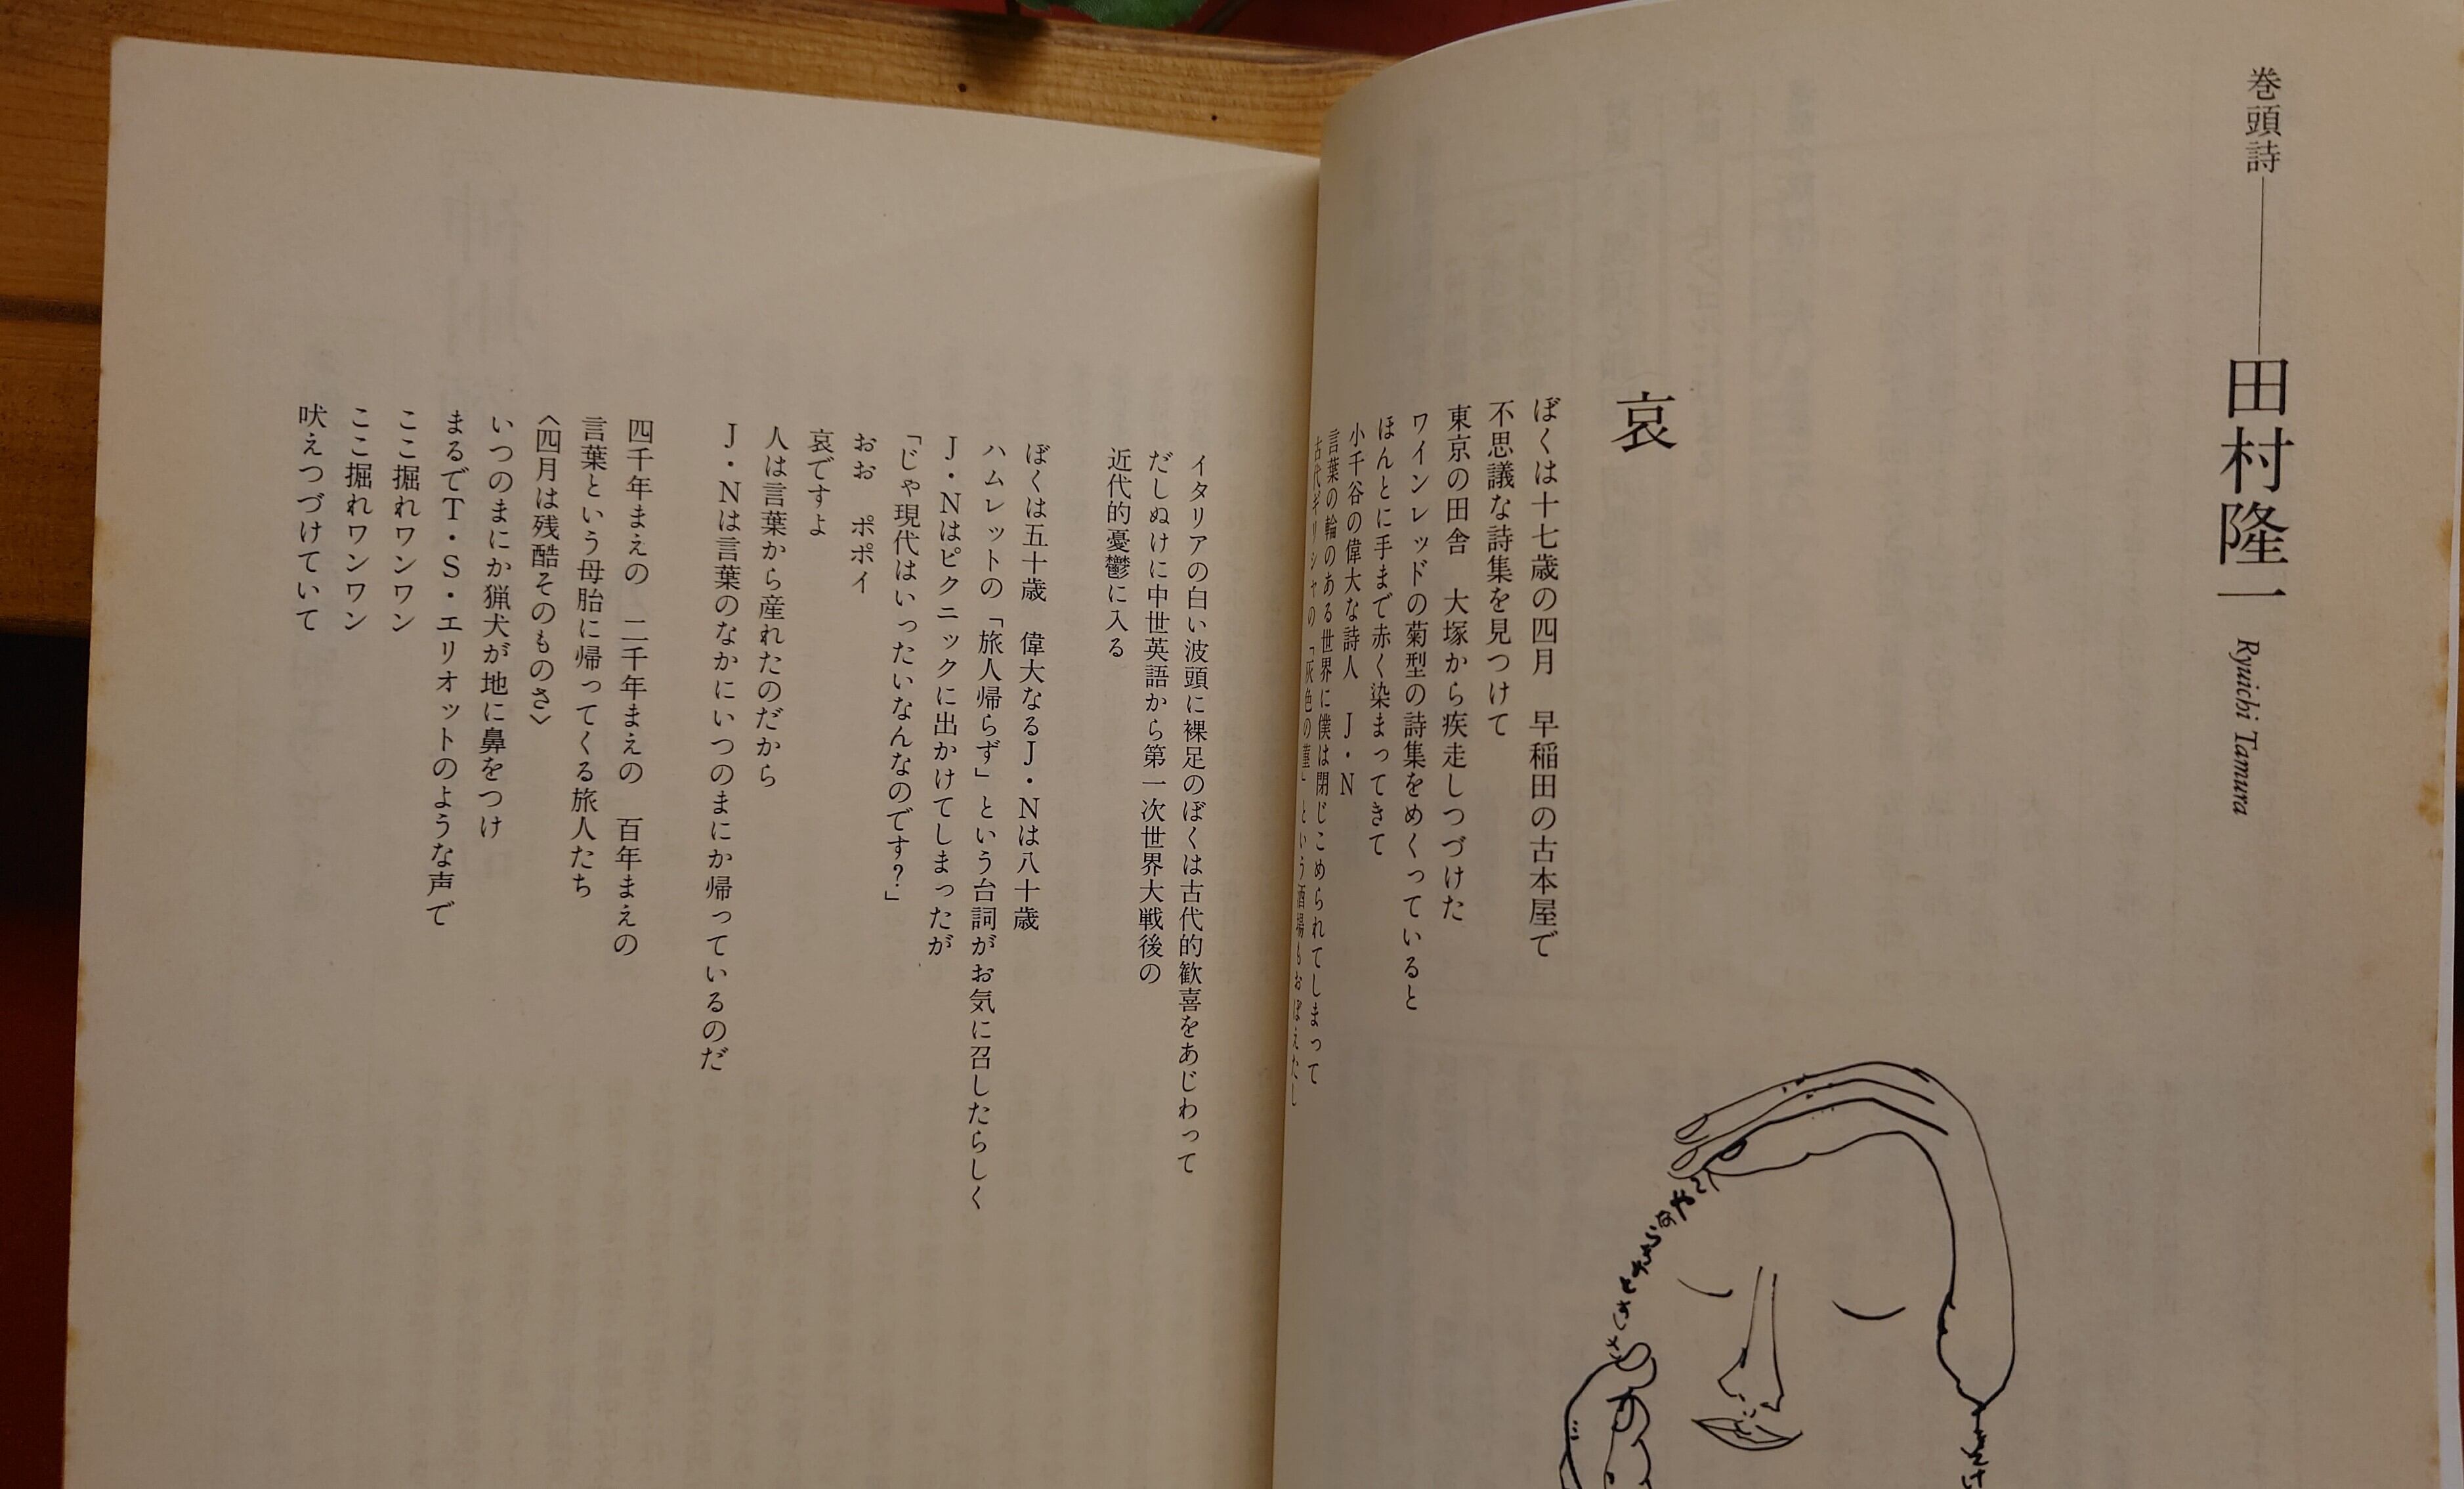 巻頭詩――田村隆一 Ryuichi Tamura
哀
ぼくは十七歳の四月　早稲田の古本屋で
不思議な詩集を見つけて
東京の田舎　大塚から疾走しつづけた
ワインレッドの菊型の詩集をめくっていると
ほんとに手まで赤く染まってきて
小千谷の偉大な詩人　J・N
言葉の輪のある世界に僕は閉じこめられてしまって
古代ギリシャの「灰色の菫」という酒場もおぼえたし
イタリアの白い波頭に裸足のぼくは古代的歓喜をあじわって
だしぬけに中世英語から第一次世界大戦後の
近代的憂鬱に入る
ぼくは五十歳　偉大なるJ・Nは八十歳
ハムレットの「旅人帰らず」という台詞がお気に召したらしく
J・Nはピクニックに出かけてしまったが
「じゃ現代はいったいなんなのです?」
おお　ポポイ
哀ですよ
人は言葉から産れたのだから
J・Nは言葉のなかにいつのまにか帰っているのだ
四千年まえの　二千年まえの　百年まえの
言葉という母胎に帰ってくる旅人たち
〈四月は残酷そのものさ〉
いつのまにか猟犬が地に鼻をつけ
まるでT・S・エリオットのような声で
ここ掘れワンワン
ここ掘れワンワン
吠えつづけていて